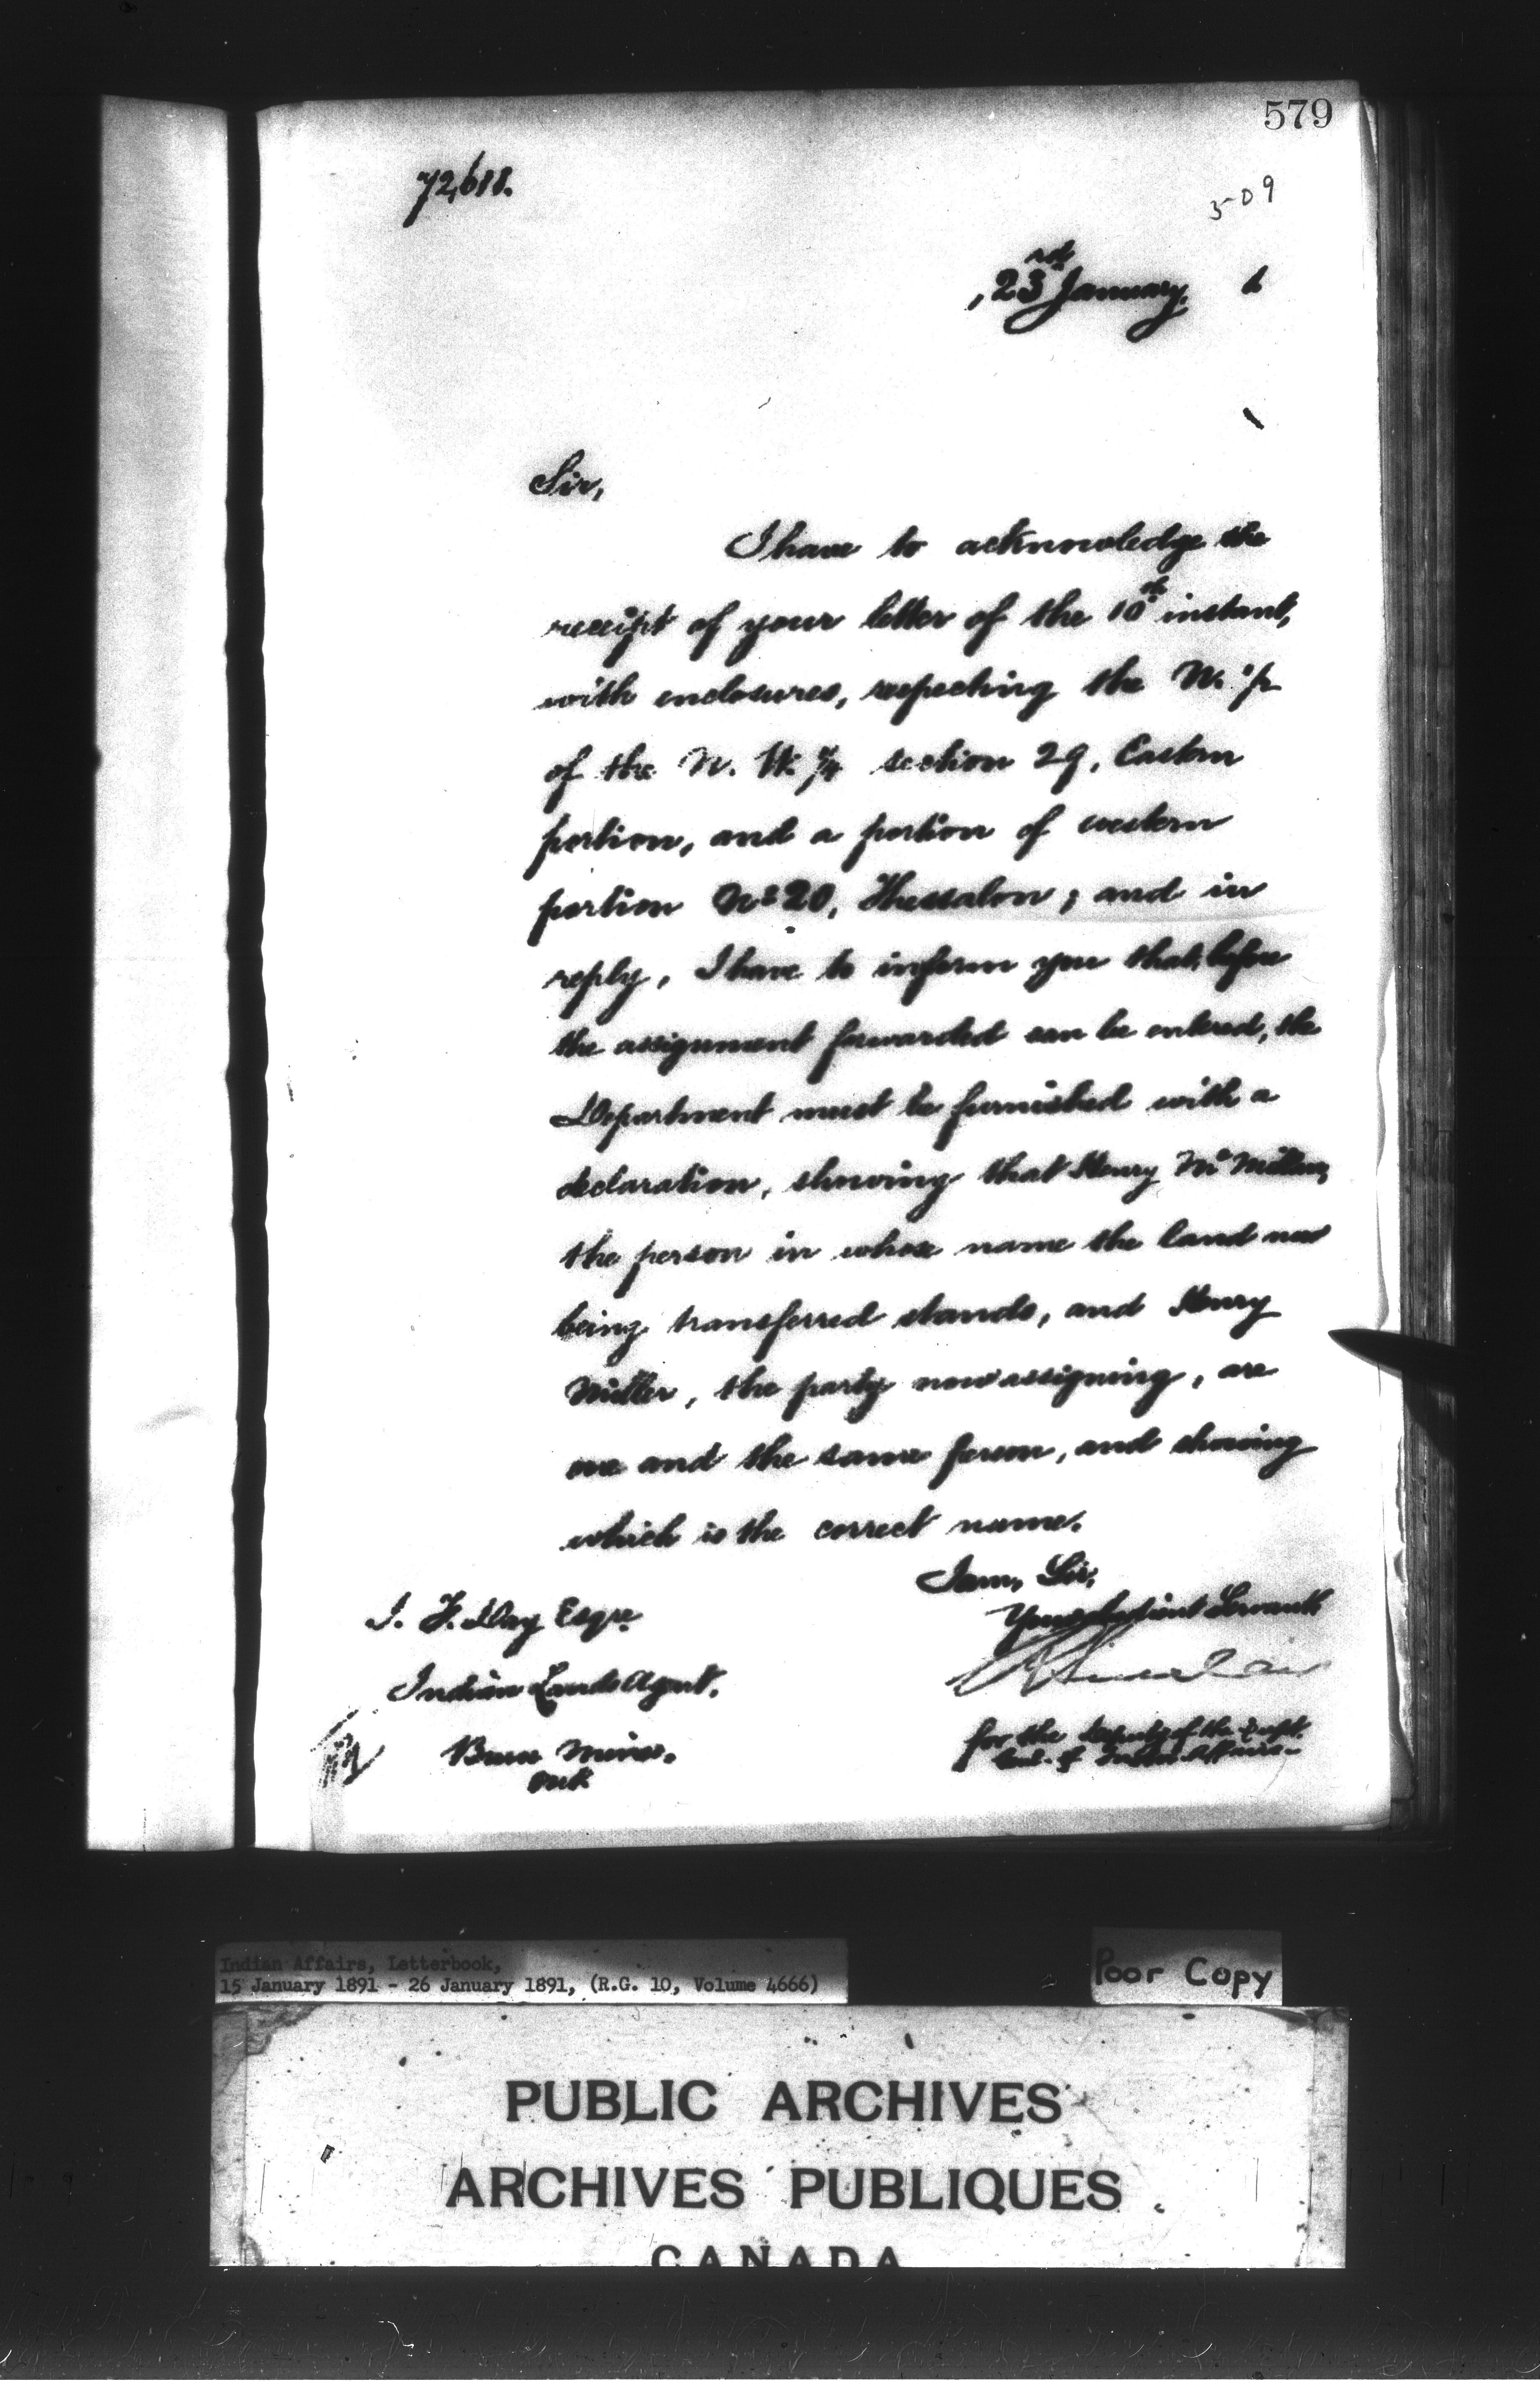 579
72,611.
509
, 23rd January, 1
Sir,
I have to acknowledge the
receipt of your letter of the 10th instant,
with enclosures, respecting the N. ½
of the N. W. ¼ section 29, Eastern
portion, and a portion of western
portion No 20, Thessalon; and in
reply, I have to inform you that, before
the assignment forwarded can be entered, the
Department must be furnished with a
declaration, showing that Henry McMillan,
the person in whose name the land now
being transferred stands, and Henry
Miller, the party now assigning, are
one and the same person, and showing
which is the correct name.
I am, Sir,
Your obedient Servant
J. F. Day Esqre
Indian Lands Agent.
for the Deputy of the Supt.
Genl. of Indian Affairs-
Bruce Mines.
Ont
Indian Affairs, Letterbook,
15 January 1891 - 26 January 1891, (R.G. 10, Volume 4666)
Poor Copy
PUBLIC ARCHIVES
ARCHIVES PUBLIQUES
CANADA